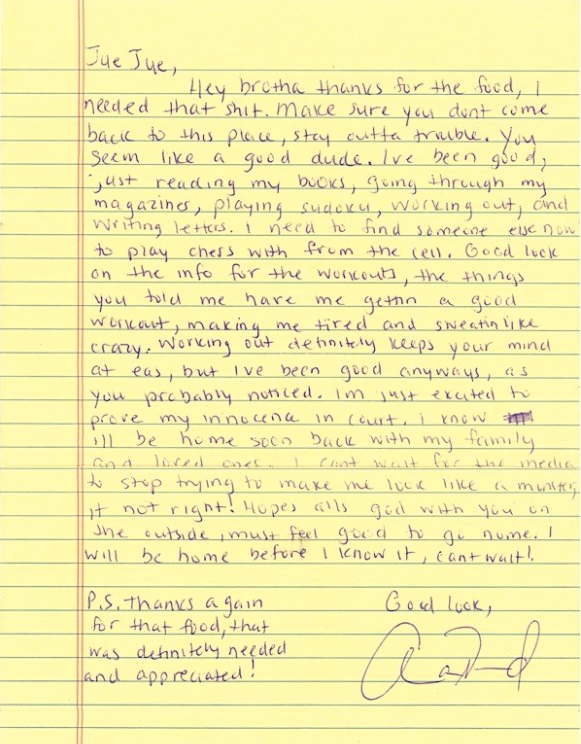 Jue Jue,
Hey brotha thanks for the food, I
needed that shit. Make sure you dont come
back to this place, stay outta trouble. You
seem like a good dude. Ive been good,
just reading my books, going through my
magazines, playing sudoku, working out, and
writing letters. I need to find someone else now
to play chess with from the cell. Good look
on the info for the workouts, the things
you told me have me gettin a good
workout, making me tired and sweatin like
crazy. Working out definitely keeps your mind
at eas, but Ive been good anyways, as
you probably noticed. Im just excited to
prove my innocence in court. I know
ill be home soon back with my family
and loved ones. I cant wait for the media
to stop trying to make me look like a
it not right! Hopes alls god with you on
the outside, must feel good to go home. I
will be home before I know it, cant wait!
P.S. thanks again
for that food, that
was definitely needed
and appreciated!
Good luck,